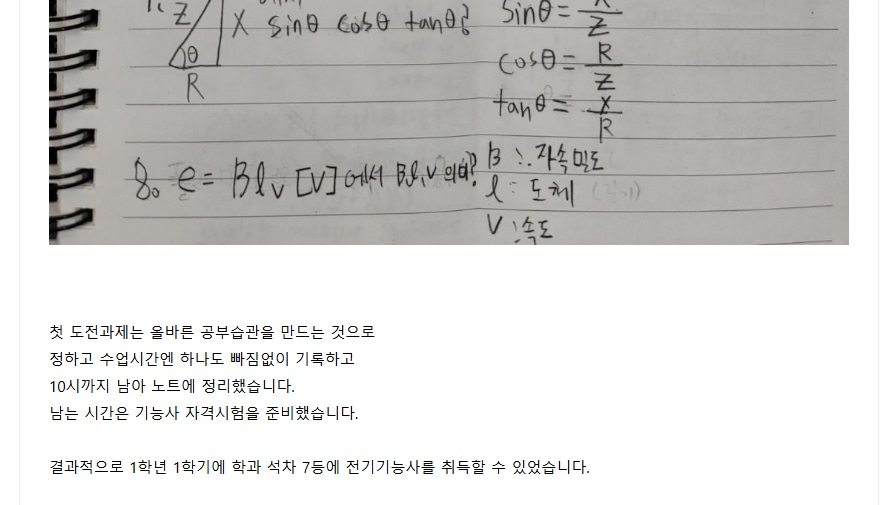 Z X sinθ cosθ tanθ?
θ
R
sinθ = X/Z
cosθ = R/Z
tanθ = X/R
8. e = Blv [V] 에서 B,l,v 의미?
B : 자속밀도
l : 도체
V : 속도
첫 도전과제는 올바른 공부습관을 만드는 것으로
정하고 수업시간엔 하나도 빠짐없이 기록하고
10시까지 남아 노트에 정리했습니다.
남는 시간은 기능사 자격시험을 준비했습니다.
결과적으로 1학년 1학기에 학과 석차 7등에 전기기능사를 취득할 수 있었습니다.